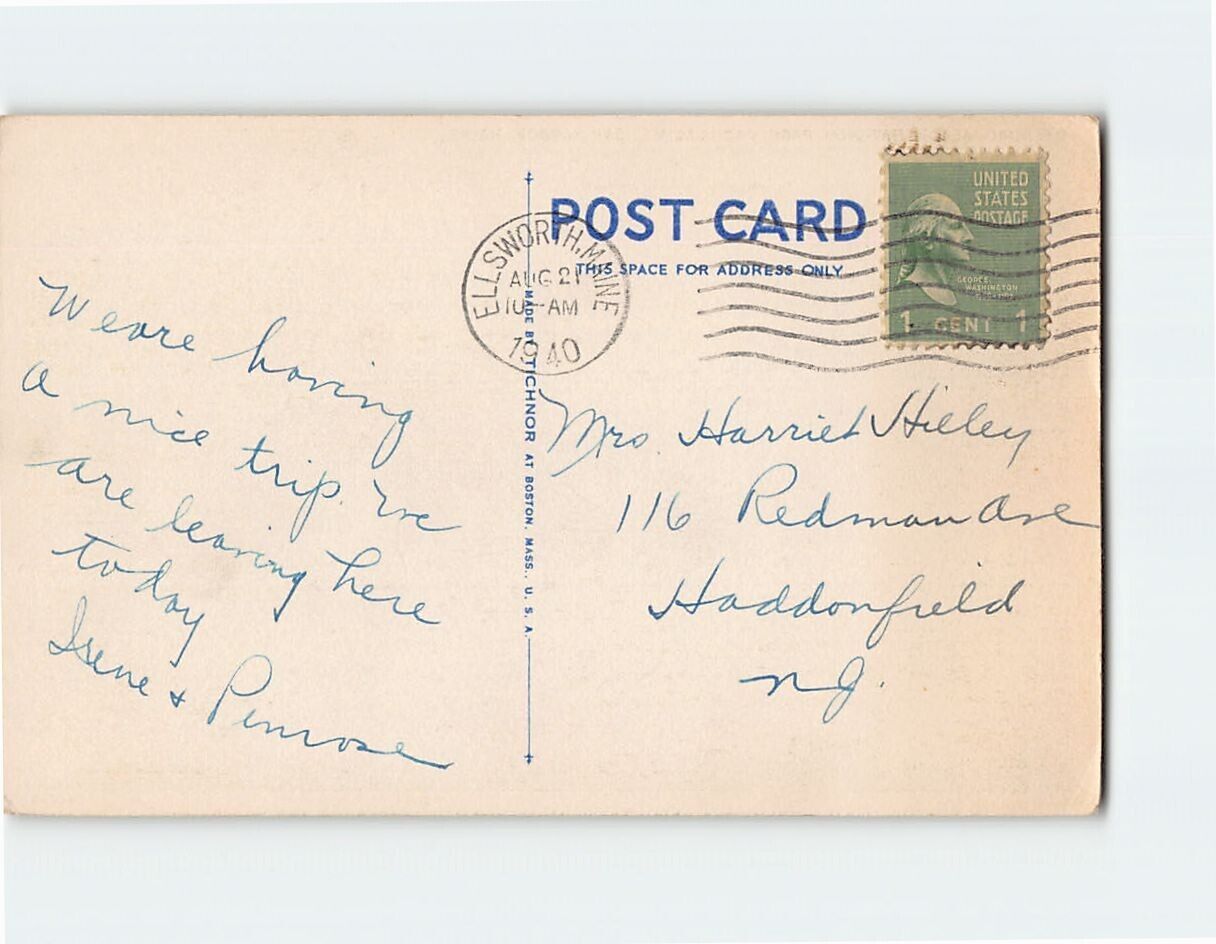 We are having
a nice trip. We
are leaving here
today
Irene & Penrose
MADE BY TICHNOR AT BOSTON, MASS., U. S. A.
POST CARD
THIS SPACE FOR ADDRESS ONLY
ELLSWORTH, MAINE
AUG 21
10 - AM
1940
UNITED
STATES
POSTAGE
GEORGE
WASHINGTON
1 CENT 1
Mrs. Harriet Hieley
116 Redman Ave
Haddonfield
N J.